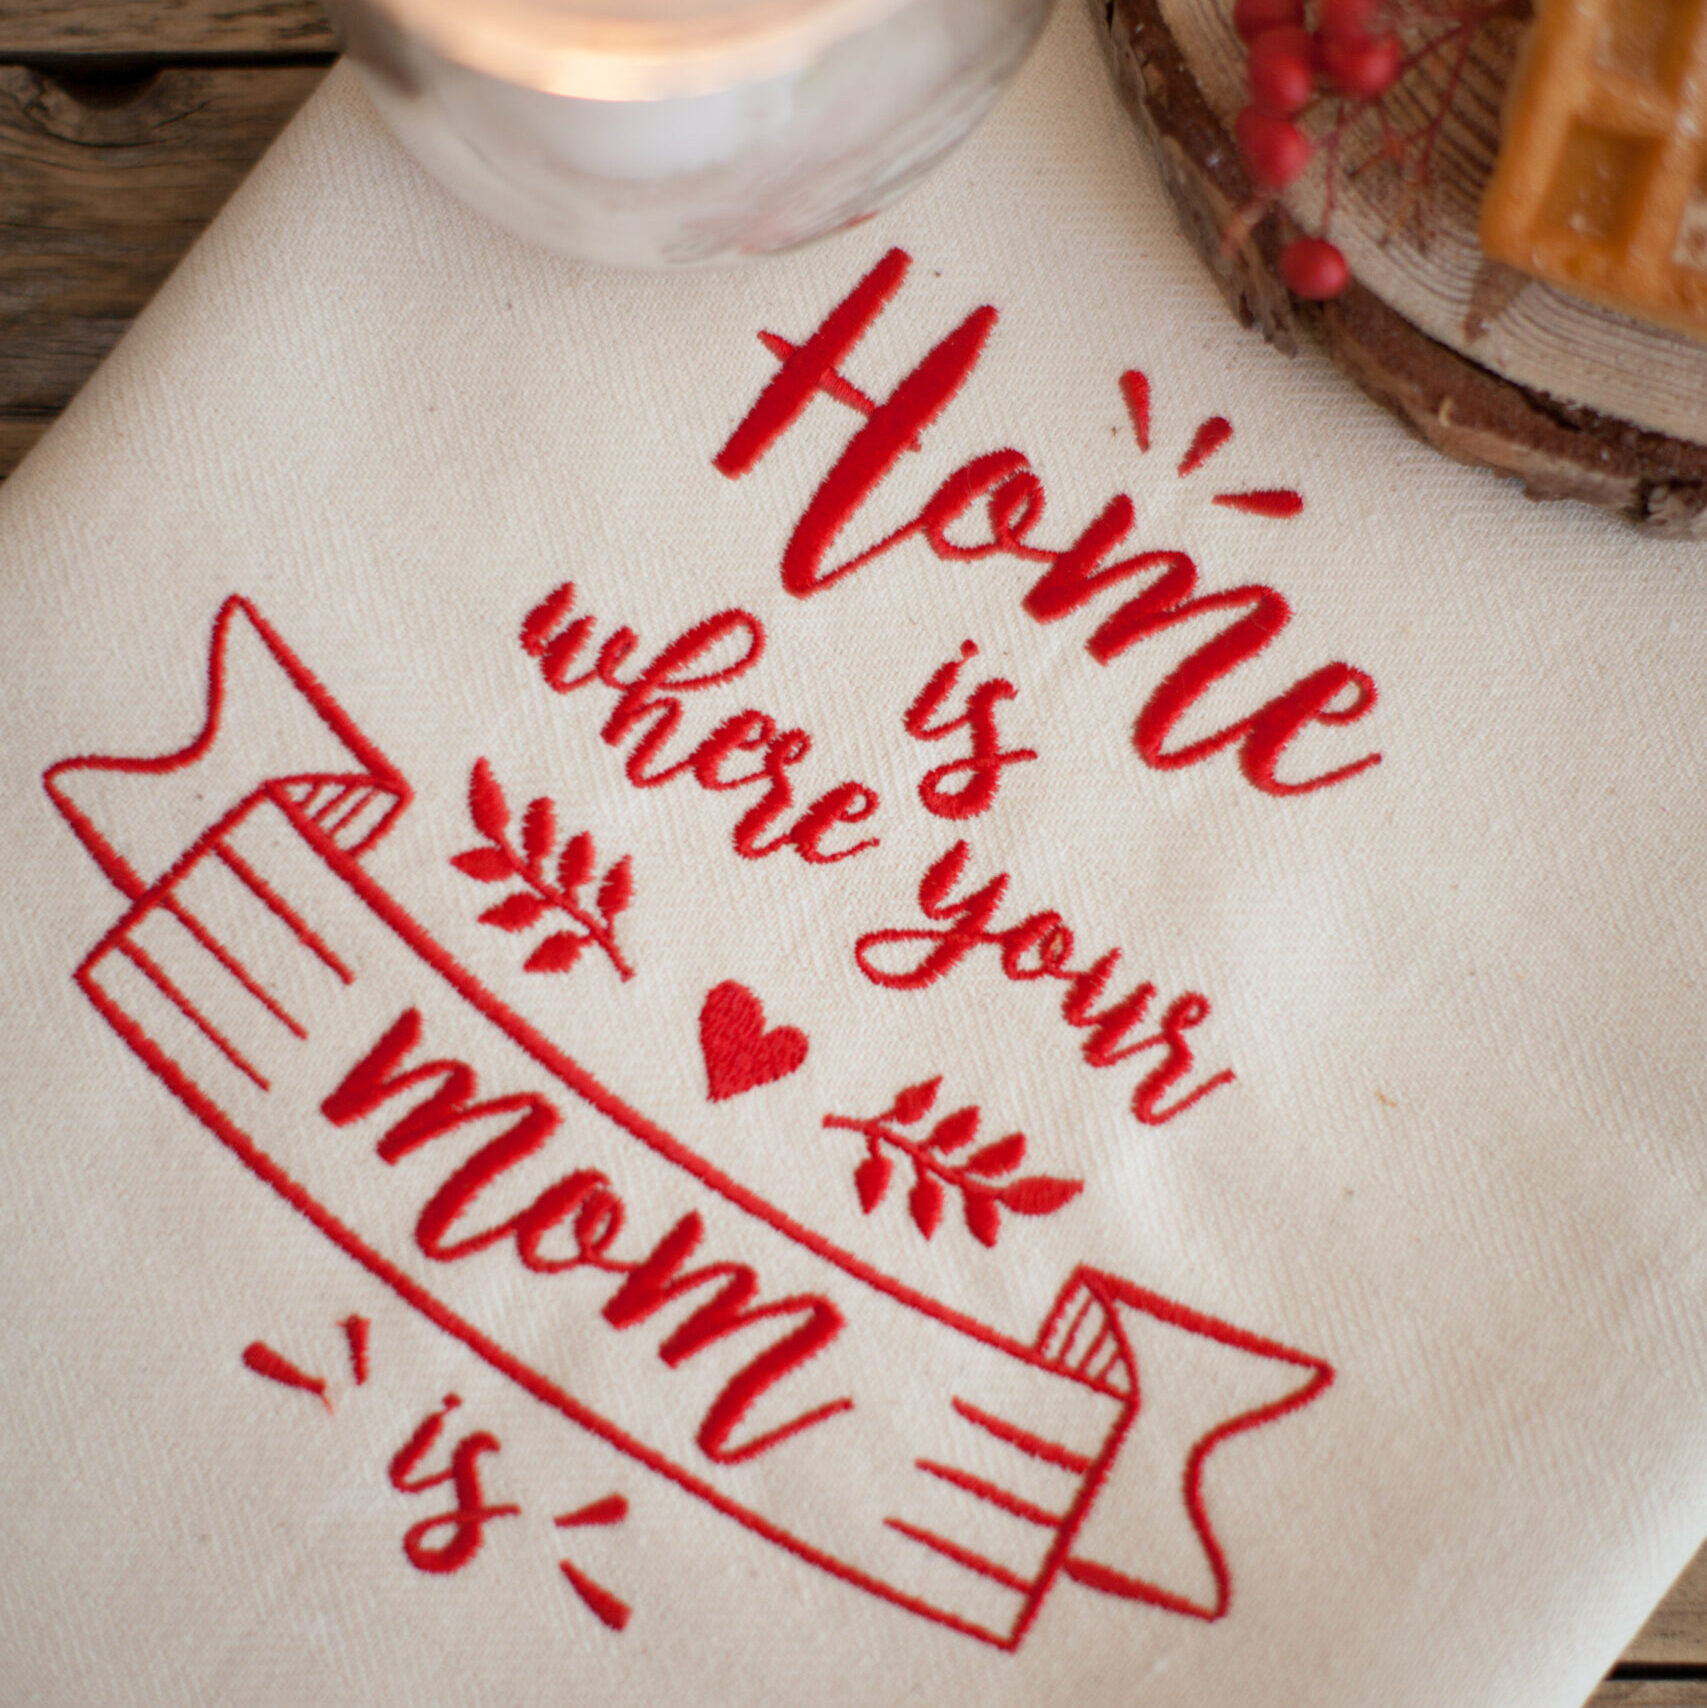 Home
is
where your
mom
is